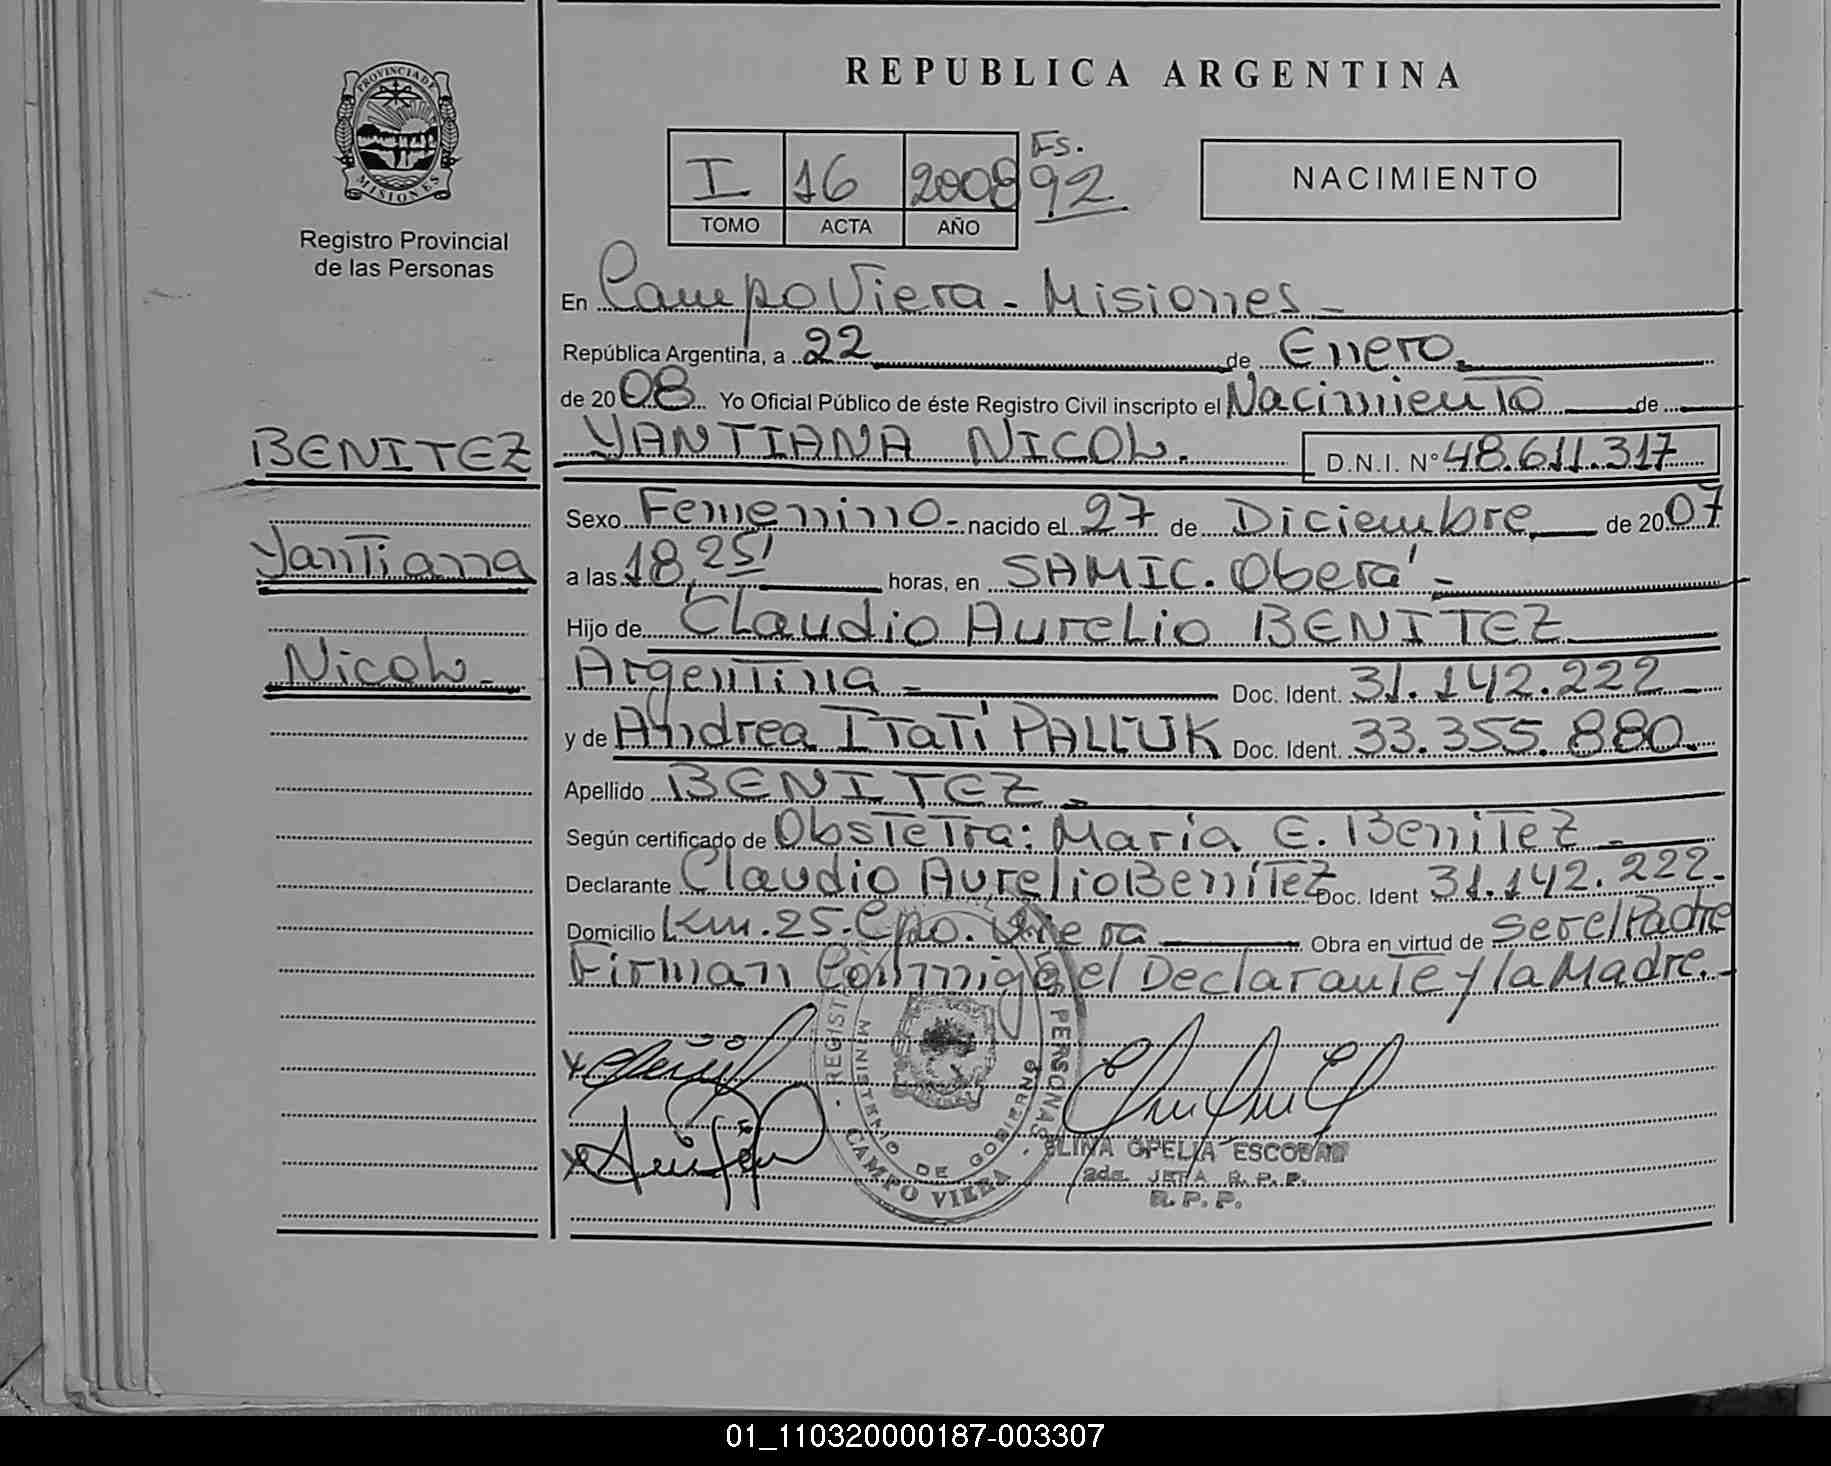 REPUBLICA ARGENTINA
PROVINCIA DE MISIONES
Registro Provincial
de las Personas
I 16 2008 Fs. 92
TOMO ACTA AÑO
NACIMIENTO
En Campo Viera - Misiones -
República Argentina, a 22 de Enero
de 2008 Yo Oficial Público de éste Registro Civil inscripto el Nacimiento de
BENITEZ
YANTIANA NICOL. D.N.I. N° 48.611.317
Sexo Femenino - nacido el 27 de Diciembre de 2007
Yantiana
a las 18,25' horas, en SAMIC. Oberá -
Hijo de Claudio Aurelio BENITEZ
Nicol -
Argentina - Doc. Ident. 31.142.222
y de Andrea Itatí PALLUK Doc. Ident. 33.355.880.
Apellido BENITEZ -
Según certificado de Obstetra: María E. Benitez -
Declarante Claudio Aurelio Benítez Doc. Ident 31.142.222.
Domicilio Km. 25. Cpo. Viera Obra en virtud de ser el Padre
Firman Conmigo el Declarante y la Madre. -
REGIST PERSONAS
MINISTERIO DE GOBIERNO
CAMPO VIERA
ELINA OFELIA ESCOBAR
2da. JEFA R. P. P.
R. P. P.
01_110320000187-003307